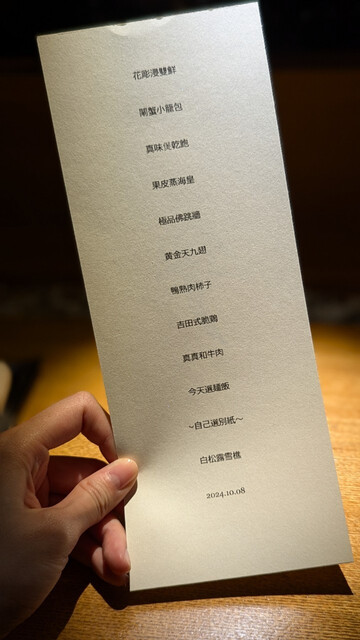 花彫漫雙鮮
閘蟹小籠包
真味煲乾鮑
果皮蒸海皇
極品佛跳牆
黄金天九翅
鴨熟肉柿子
吉田式脆鶏
真真和牛肉
今天選麺飯
~自己選別紙~
白松露雪糕
2024.10.08